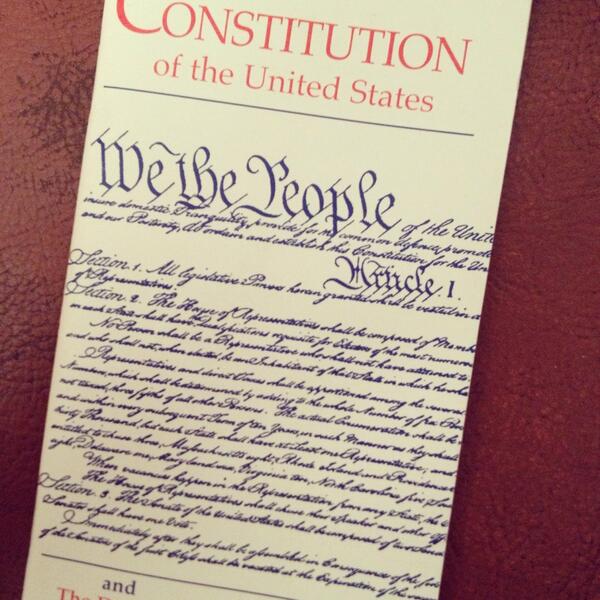 CONSTITUTION
of the United States
We the People of the Unite
insure domestic Tranquility, provide for the common defence, promote
and our Posterity, do ordain and establish this Constitution for the Un
Article. I.
Section. 1. All legislative Powers herein granted shall be vested in a
of Representatives.
Section. 2. The House of Representatives shall be composed of Membe
in each State shall have the Qualifications requisite for Electors of the most numero
No Person shall be a Representative who shall not have attained to
and who shall not, when elected, be an Inhabitant of that State in which he sha
Representatives and direct Taxes shall be apportioned among the several
Numbers, which shall be determined by adding to the whole Number of free Per
not taxed, three fifths of all other Persons. The actual Enumeration shall be
and within every subsequent Term of ten Years, in such Manner as they shall
thirty Thousand, but each State shall have at Least one Representative; and
entitled to chuse three, Massachusetts eight, Rhode Island and Providence
eight, Delaware one, Maryland six, Virginia ten, North Carolina five, So
When vacancies happen in the Representation from any State, the E
The House of Representatives shall chuse their Speaker and other Off
Section. 3. The Senate of the United States shall be composed of two Sena
Senator shall have one Vote.
Immediately after they shall be assembled in Consequence of the firs
of the Senators of the first Class shall be vacated at the Expiration of the
and
The D